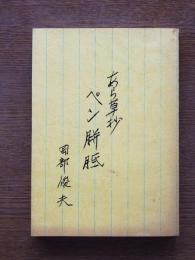 あら草抄
ペン胼胝
岡部俊夫